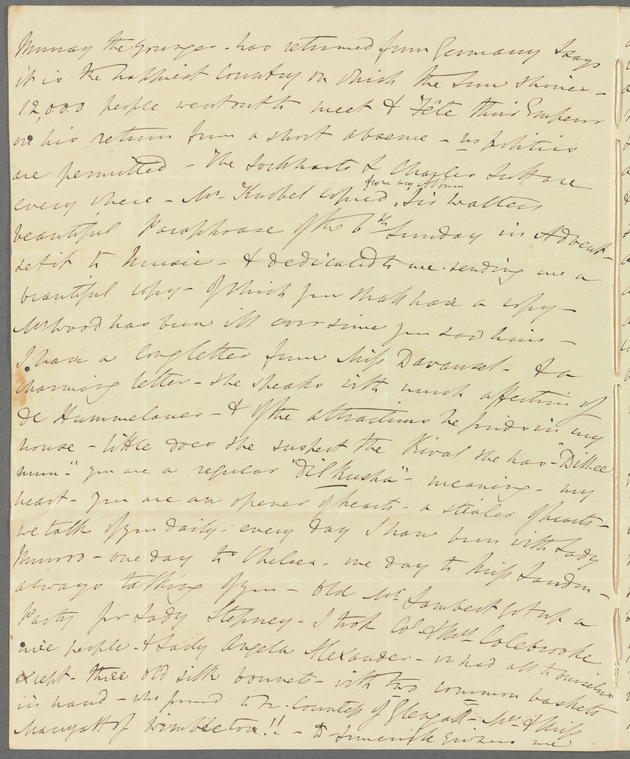 Murray the Younger - has returned from Germany & says
it is the happiest Country on which the Sun shines -
12,000 people went out to meet & Fête their Emperor
on his return from a short absence - no politics
are permitted - The Lockharts & Charles Scott are
from my Album
every where - Mr. Knobel copied Sir Walters
beautiful Paraphrase of the 6th Sunday in Advent -
set it to Music - & dedicated to me - sending me a
beautiful copy - of which you shall have a copy -
Mr Wood has been ill ever since you saw him -
I have a long letter from Miss Davanset - & a
charming letter - she speaks with much affection of
De Hummelauer - & of the attractions he finds in my
house - little does she suspect the Rival she has -
mun" you are a regular "Dil Kusha" - meaning - my
heart - you are an opener of hearts - a stealer of hearts -
we talk of you daily - every day I have been with Lady
Munro - one day to Chelsea - one day to Miss Landon -
always talking of you - Old Mr Lambert got up a
Party for Lady Stepney - I took Col & Mrs Colebrooke
nice people - & Lady Angela Alexander - we had all to ourselves
except - three old silk bonnets - with two common baskets
in hand - who proved to be Countess of Glengall - Mrs & Miss
Marryatt of Wimbledon!! - me